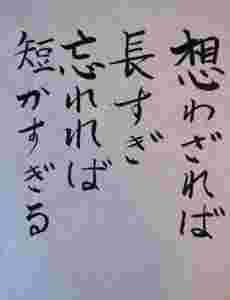 想わざれば
長すぎ
忘れれば
短かすぎる